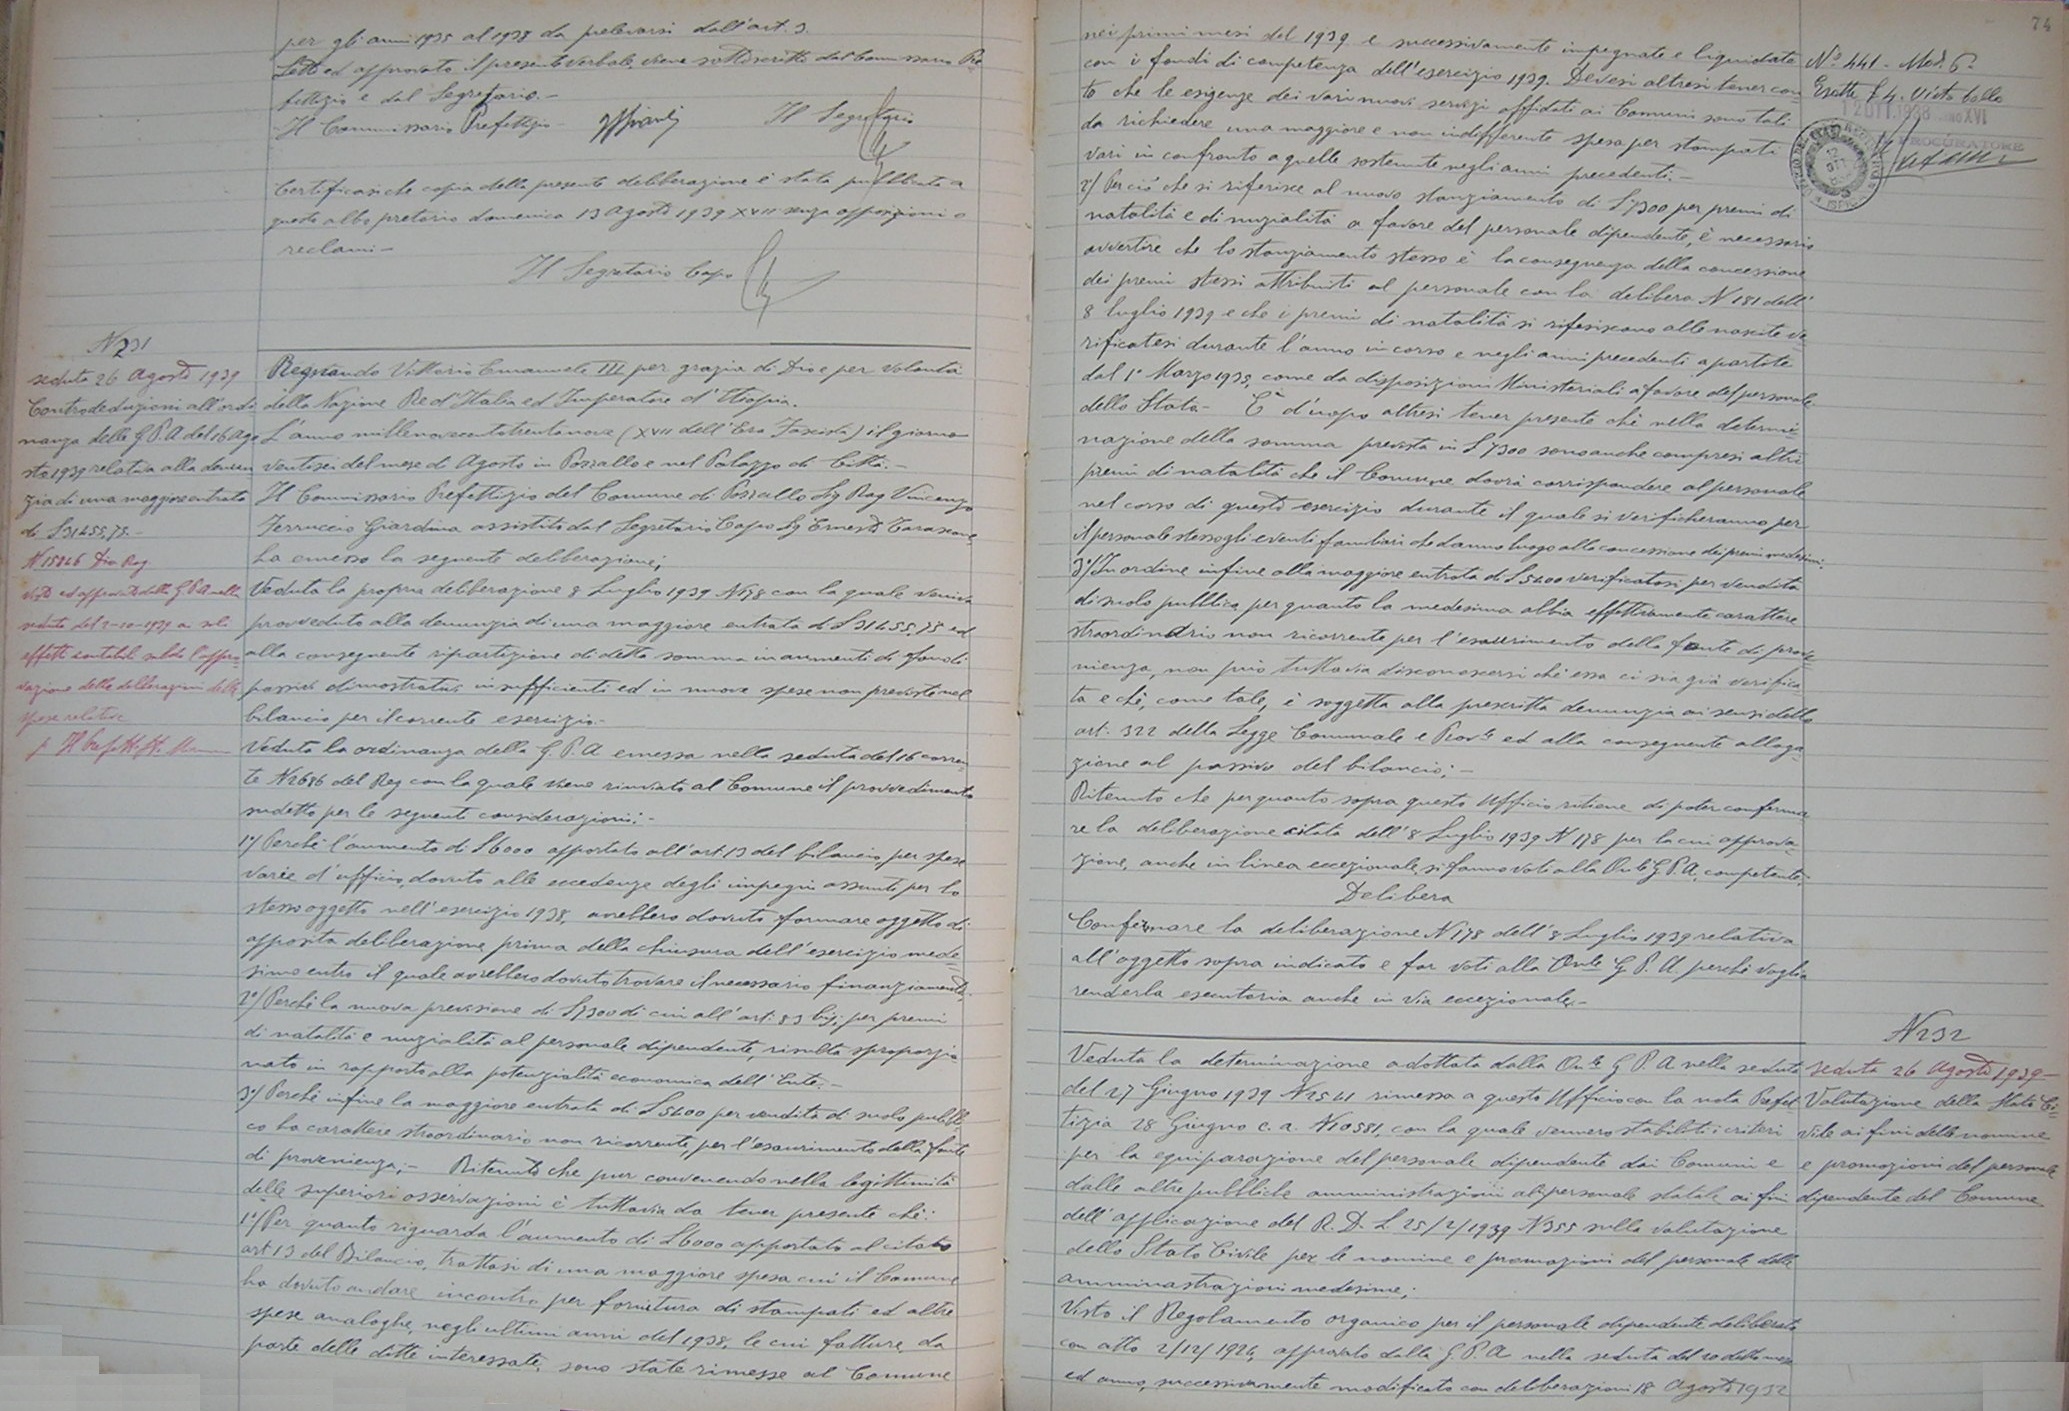 per gli anni 1935 al 1938 da prelevarsi dall'art. 3.
Letto ed approvato il presente verbale viene sottoscritto dal Commissario Pre
fettizio e dal Segretario.-
Il Commissario Prefettizio Il Segretario
Certificasi che copia della presente deliberazione è stata pubblicata a
questo albo pretorio domenica 13 Agosto 1939 XVII senza opposizioni o
reclami-
Il Segretario Capo
N 231
seduta 26 Agosto 1939
Controdeduzioni all'ordi
nanza della G.P.A del 16 Ago
sto 1939 relativa alla denun
zia di una maggiore entrata
di £31455,75.-
N 15846 Div Rag
Visto ed approvato dalla G.P.A nella
seduta del 3-10-1939 ai soli
effetti contabili salvo l'appro
vazione delle deliberazioni delle
spese relative
p. Il Prefetto
Regnando Vittorio Emanuele III per grazia di Dio e per Volontà
della Nazione Re d'Italia ed Imperatore d'Etiopia.
L'anno millenovecentotrentanove (XVII dell'Era Fascista) il giorno
ventisei del mese di Agosto in Pozzallo e nel Palazzo di Città.-
Il Commissario Prefettizio del Comune di Pozzallo Sig Rag Vincenzo
Ferruccio Giardina assistito dal Segretario Capo Sig Ernesto Tarascone,
ha emesso la seguente deliberazione;
Veduta la propria deliberazione 8 Luglio 1939 N178 con la quale veniva
provveduto alla denunzia di una maggiore entrata di £31455,75 ed
alla conseguente ripartizione di detta somma in aumenti di fondi
passivi dimostratisi insufficienti ed in nuove spese non previste nel
bilancio per il corrente esercizio.-
Veduta la ordinanza della G.P.A emessa nella seduta del 16 corren
te N2686 del Reg con la quale viene rinviato al Comune il provvedimento
sudetto per le seguenti considerazioni:-
1°/ Perchè l'aumento di £6000 apportato all'art 13 del bilancio, per spese
varie d'ufficio, dovuto alle eccedenze degli impegni assunti per lo
stesso oggetto nell'esercizio 1938, avrebbero dovuto formare oggetto di
apposita deliberazione prima della chiusura dell'esercizio mede=
simo entro il quale avrebbero dovuto trovare il necessario finanziamento,
2°/ Perchè la nuova previsione di £7300 di cui all'art: 83 bis, per premi
di natalità e nuzialità al personale dipendente, risulta sproporzio
nato in rapporto alla potenzialità economica dell'Ente.-
3°/ Perchè infine la maggiore entrata di £5400 per vendita di suolo pubbli
co ha carattere straordinario non ricorrente, per l'esaurimento della fonte
di provenienza;- Ritenuto che pur convenendo nella legittimità
delle superiori osservazioni è tuttavia da tener presente che:
1°/ Per quanto riguarda l'aumento di £6000 apportato al citato
art 13 del Bilancio, trattasi di una maggiore spesa cui il Comune
ha dovuto andare incontro per fornitura di stampati ed altre
spese analoghe, negli ultimi anni del 1938, le cui fatture, da
parte delle ditte interessate, sono state rimesse al Comune
74
nei primi mesi del 1939 e successivamente impegnate e liquidate
con i fondi di competenza dell'esercizio 1939. Devesi altresì tener con
to che le esigenze dei vari nuovi servizi affidati ai Comuni sono tali
da richiedere una maggiore e non indifferente spesa per stampati
vari in confronto a quelle sostenute negli anni precedenti.-
2°/ Per ciò che si riferisce al nuovo stanziamento di £7300 per premi di
natalità e di nuzialità a favore del personale dipendente, è necessario
avvertire che lo stanziamento stesso è la conseguenza della concessione
dei premi stessi attribuiti al personale con la delibera N 181 dell'
8 luglio 1939 e che i premi di natalità si riferiscono alle nascite ve
rificatesi durante l'anno in corso e negli anni precedenti a partire
dal 1° Marzo 1938, come da disposizioni Ministeriali a favore del personale
dello Stato- È d'uopo altresì tener presente che nella determi=
nazione della somma prevista in £7300 sono anche compresi altri
premi di natalità che il Comune dovrà corrispondere al personale
nel corso di questo esercizio durante il quale si verificheranno per
il personale stesso gli eventi familiari che danno luogo alla concessione dei premi medesimi.
3°/ In ordine infine alla maggiore entrata di £5400 verificatasi per vendita
di suolo pubblico, per quanto la medesima abbia effettivamente carattere
straordinario non ricorrente per l'esaurimento della fonte di prove
nienza, non può tuttavia disconoscersi che essa ci sia già verifica
ta e che, come tale, è soggetta alla prescritta denunzia ai sensi della
art. 322 della Legge Comunale e Prov.le ed alla conseguente alloga
zione al passivo del bilancio;-
Ritenuto che per quanto sopra questo Ufficio ritiene di poter conferma
re la deliberazione citata dell'8 Luglio 1939 N 178 per la cui approva=
zione, anche in linea eccezionale, si fanno voti alla On.le G.P.A, competente;
Delibera
Confermare la deliberazione N 178 dell'8 Luglio 1939 relativa
all'oggetto sopra indicato e far voti alla On.le G.P.A perchè voglia
renderla esecutoria anche in via eccezionale.-
N° 441. Mod. 6.
Esatte £ 4. Visto bollo
PROCURATORE
N 232
seduta 26 Agosto 1939-
Valutazione dello Stato Ci=
vile ai fini delle nomine
e promozioni del personale
dipendente del Comune
Veduta la determinazione adottata dalla On.le G.P.A nella seduta
del 27 Giugno 1939 N2541 rimessa a questo Ufficio con la nota Prefet
tizia 28 Giugno c.a. N10581, con la quale vennero stabiliti i criteri
per la equiparazione del personale dipendente dai Comuni e
dalle altre pubbliche amministrazioni al personale statale ai fini
dell'applicazione del R.D.L 25/2/1939 N355 sulla valutazione
dello Stato Civile per le nomine e promozioni del personale delle
amministrazioni medesime;
Visto il Regolamento organico per il personale dipendente deliberato
con atto 2/12/1926, approvato dalla G.P.A nella seduta del 20 detto mese
ed anno, successivamente modificato con deliberazioni 18 Agosto 1932